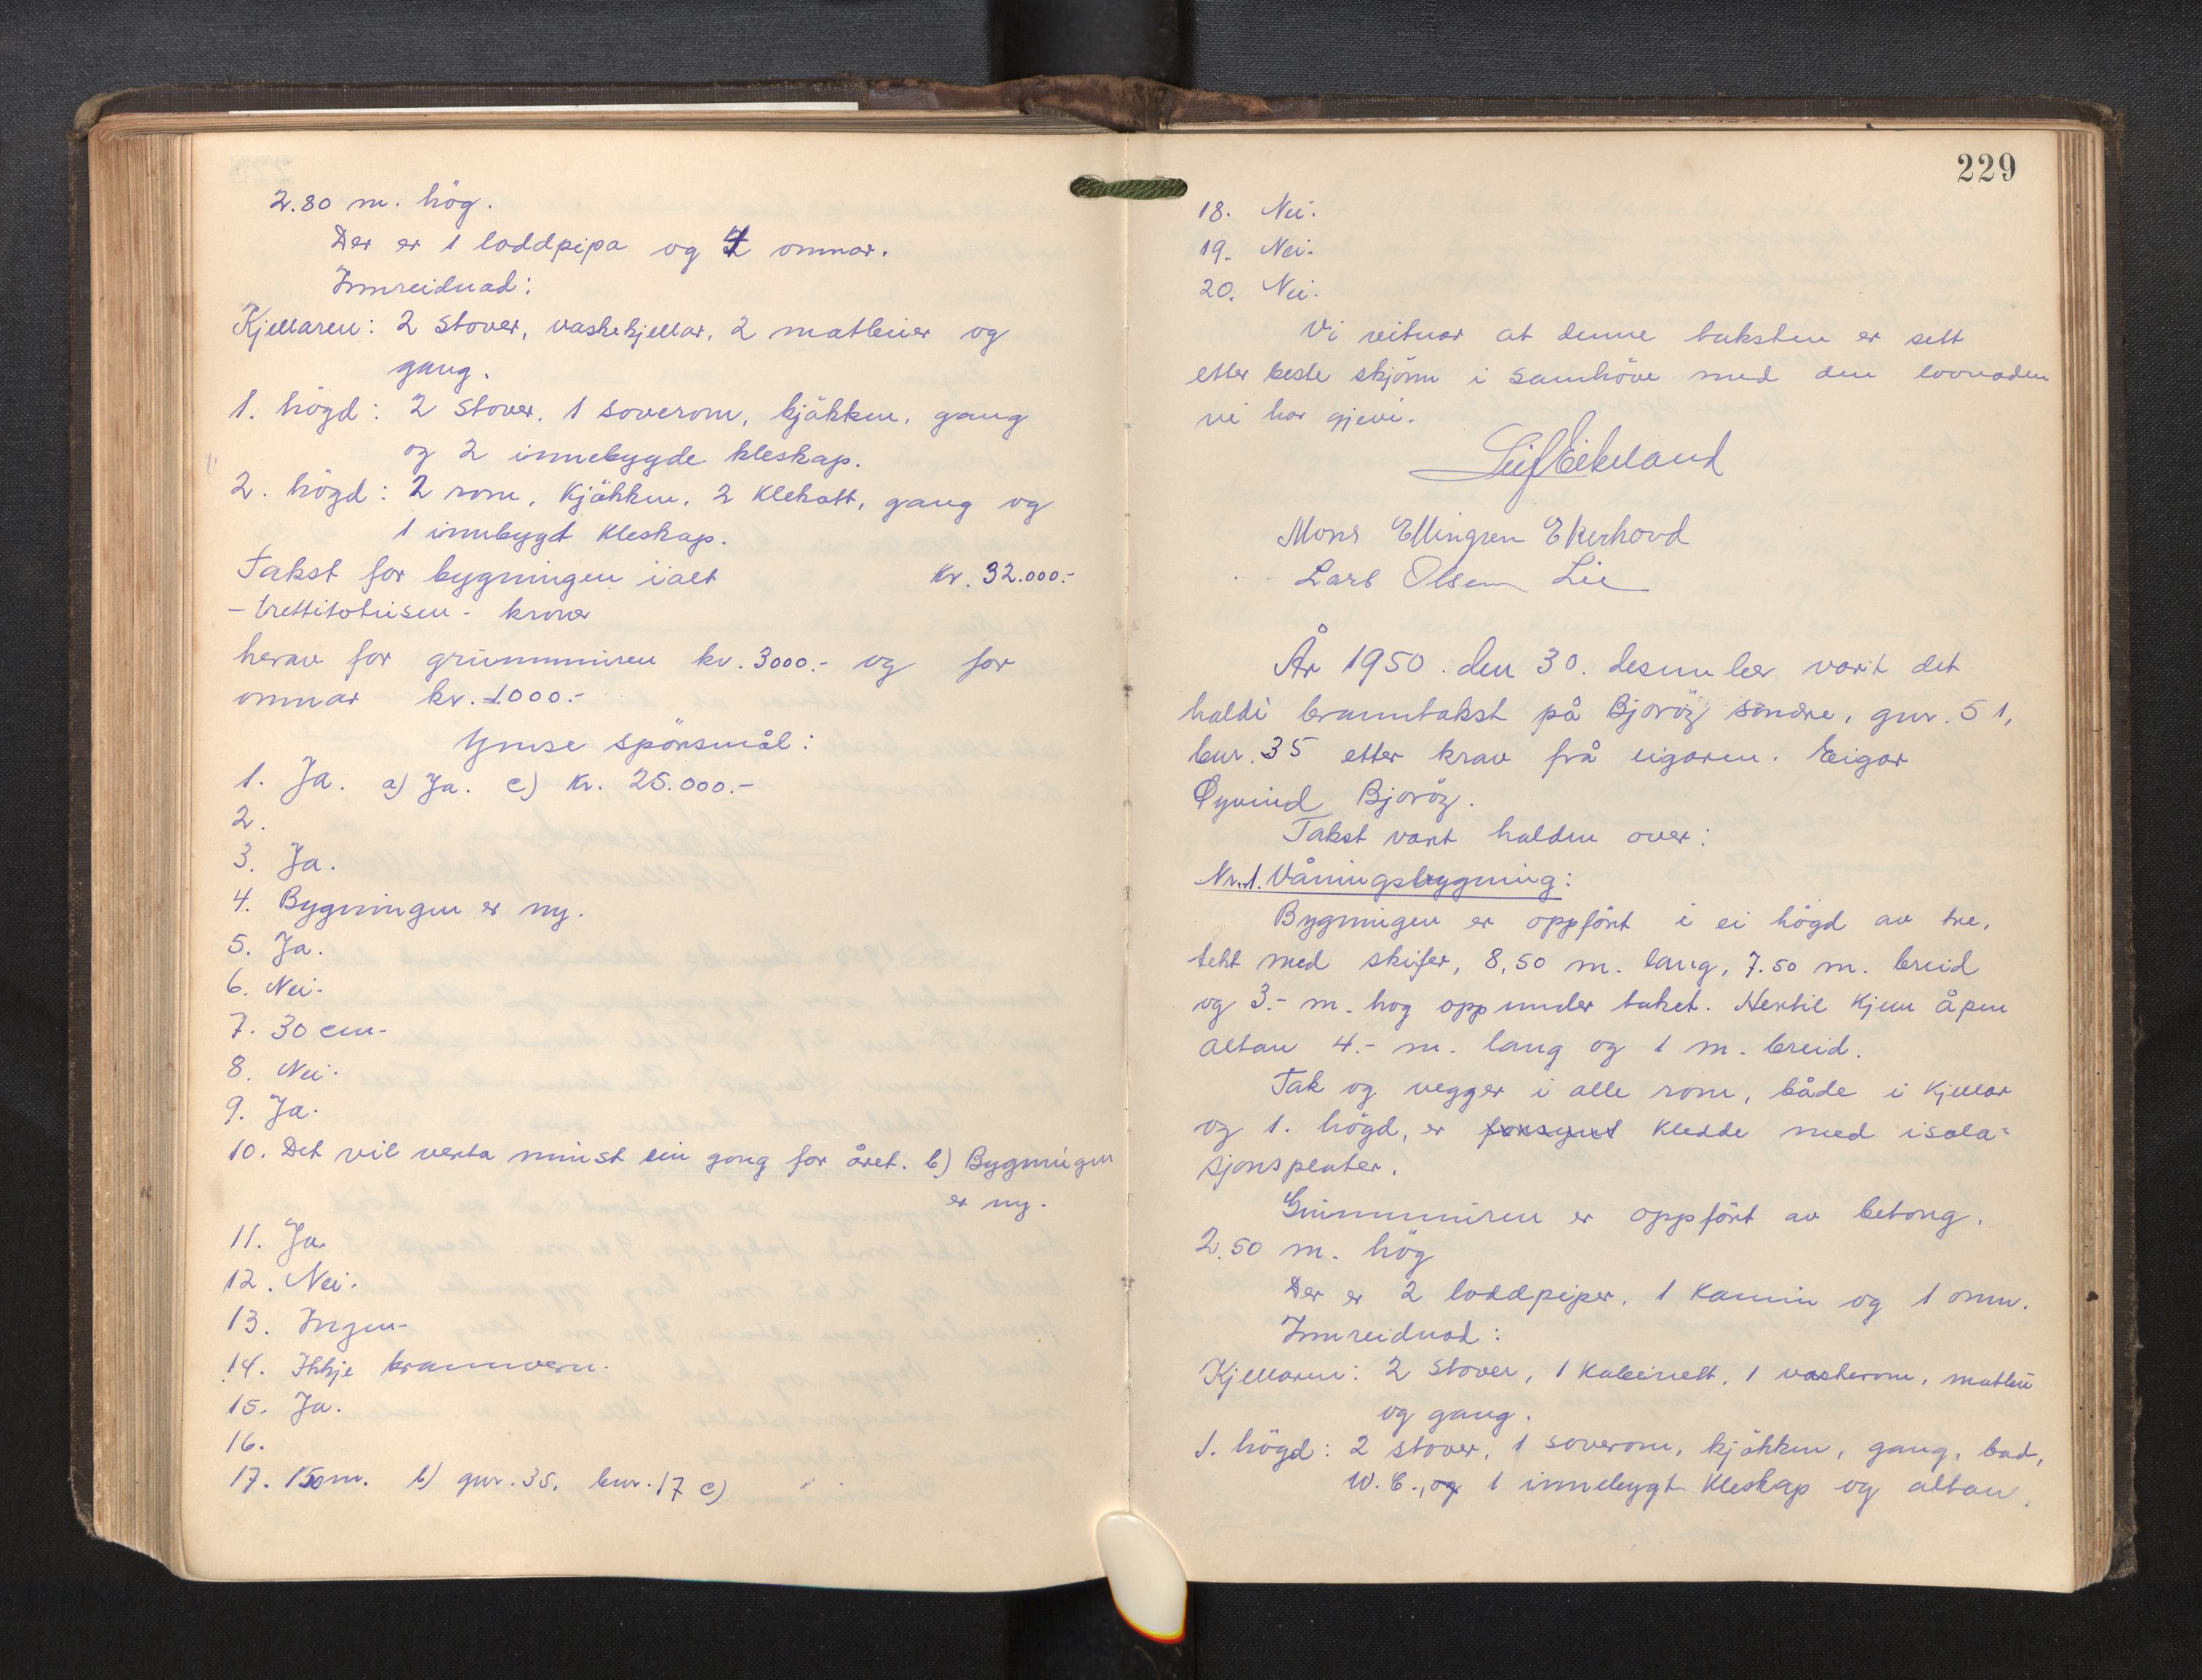 2.80 m. hög.
Der er 1 loddpipa og 4 omnar.
Innreidnad:
Kjellaren: 2 stover, vaskekjellar, 2 matbuer og
gang.
1. högd: 2 stover, 1 soverom, kjökken, gang
og 2 innebygde kleskap.
2. högd: 2 rom, kjökken, 2 klekott, gang og
1 innbygt kleskap.
Takst for bygningen ialt Kr. 32.000.-
- trettitotusen - kroner
herav for grunnmuren kr. 3000.- og for
omnar kr. 1000.-
Ymse spörsmål:
1. Ja. a) Ja. c) Kr. 25.000.-
2.
3. Ja.
4. Bygningen er ny.
5. Ja.
6. Nei.
7. 30 cm.
8. Nei.
9. Ja.
10. Det vil verta minst ein gong for året. b) Bygningen
er ny.
11. Ja.
12. Nei.
13. Ingen.
14. Ikkje brannvern.
15. Ja.
16.
17. 150m. b) gnr. 35, bnr. 17 c)
229
18. Nei.
19. Nei.
20. Nei.
Vi vitnar at denne taksten er sett
etter beste skjönn i samhöve med den lovnaden
vi har gjevi.
Leif Eikeland
Mons Ellingsen Ekerhovd
Lars Olsen Lie
År 1950 den 30. desember vart det
haldi branntakst på Bjoröy söndre, gnr. 51,
bnr. 35 etter krav frå eigaren. Eigar
Øyvind Bjoröy.
Takst vart halden over:
Nr. 1. Våningsbygning:
Bygningen er oppfört i ei högd av tre,
tekt med skifer, 8,50 m. lang, 7.50 m. breid
og 3.- m. hog opp under taket. Hertil kjem åpen
altan 4.- m. lang og 1 m. breid.
Tak og vegger i alle rom, både i kjellar
og 1. högd, er forsynt kledde med isola-
sjonsplater.
Grunnmuren er oppfört av betong,
2.50 m. hög
Der er 2 loddpiper, 1 kamin og 1 omn.
Innreidnad:
Kjellaren: 2 stover, 1 kabinett, 1 vaskerom, matbu
og gang.
1. högd: 2 stover, 1 soverom, kjökken, gang, bad,
W.C., og 1 innebygt kleskap og altan.